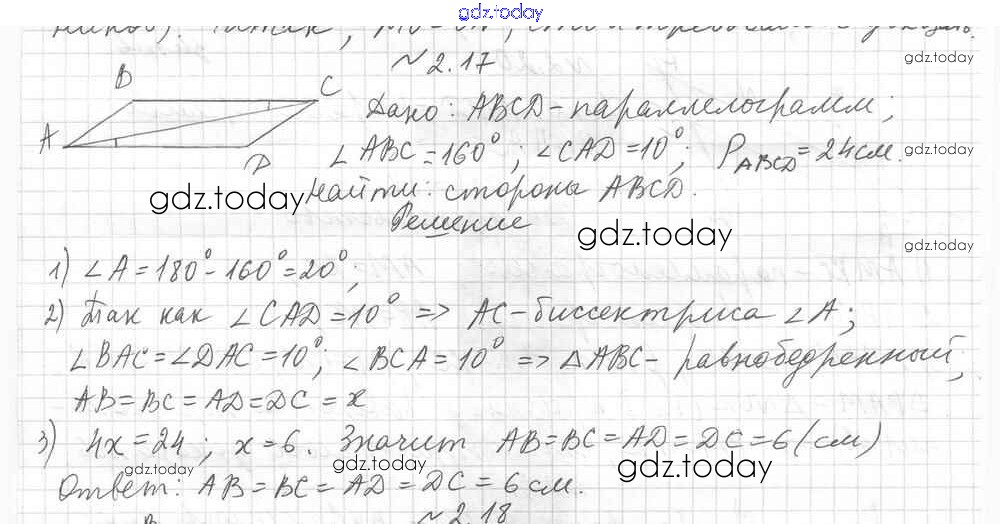 gdz.today
~ 2.17
gdz.today
B
C
A
D
Дано: ABCD - параллелограмм;
∠ABC = 160°; ∠CAD = 10°; P_ABCD = 24 см.
gdz.today
Найти: стороны ABCD.
gdz.today
Решение
gdz.today
gdz.today
1) ∠A = 180° - 160° = 20°;
2) Так как ∠CAD = 10° => AC - биссектриса ∠A;
∠BAC = ∠DAC = 10°; ∠BCA = 10° => △ABC - равнобедренный,
AB = BC = AD = DC = x
3) 4x = 24; x = 6. Значит AB = BC = AD = DC = 6 (см)
gdz.today
gdz.today
gdz.today
Ответ: AB = BC = AD = DC = 6 см.
~ 2.18
B